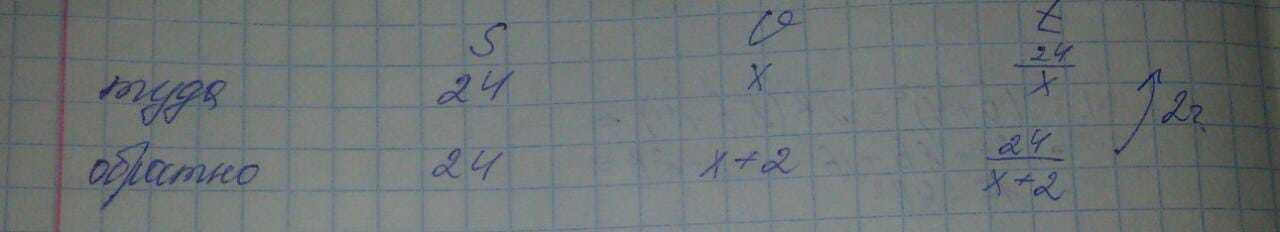 S v t
туда 24 x 24/x
обратно 24 x+2 24/(x+2) 2ч